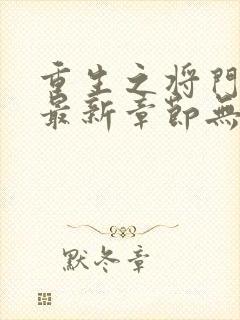 重生之将门
最新章節無
默冬章